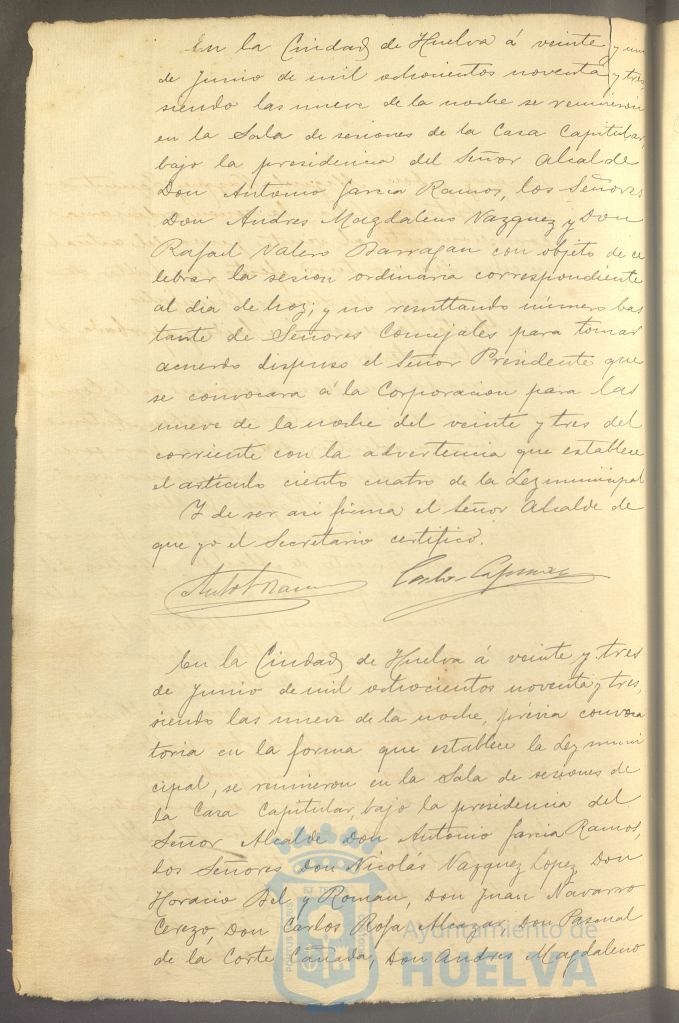 En la Ciudad de Huelva á veinte y un
de Junio de mil ochocientos noventa y tres
siendo las nueve de la noche se reunieron
en la Sala de sesiones de la Casa Capitular,
bajo la presidencia del Señor Alcalde
Don Antonio Garcia Ramos, los Señores
Don Andres Magdaleno Vazquez y Don
Rafael Valero Barragan con objeto de ce
lebrar la sesion ordinaria correspondiente
al dia de hoy; y no resultando número bas
tante de Señores Concejales para tomar
acuerdo dispuso el Señor Presidente que
se convocara á la Corporacion para las
nueve de la noche del veinte y tres del
corriente con la advertencia que establece
el artículo ciento cuatro de la Ley municipal
Y de ser asi firma el Señor Alcalde de
que yo el Secretario certifico.
En la Ciudad de Huelva á veinte y tres
de Junio de mil ochocientos noventa y tres,
siendo las nueve de la noche, prévia convoca
toria en la forma que establece la Ley muni
cipal, se reunieron en la Sala de sesiones de
la Casa Capitular, bajo la presidencia del
Señor Alcalde Don Antonio Garcia Ramos,
los Señores Don Nicolás Vazquez Lopez, Don
Horacio Bel y Roman, Don Juan Navarro
Cerezo, Don Carlos Rofa, Don Pascual
de la Corte Cañada, Don Andres Magdaleno
Ayuntamiento de
HUELVA